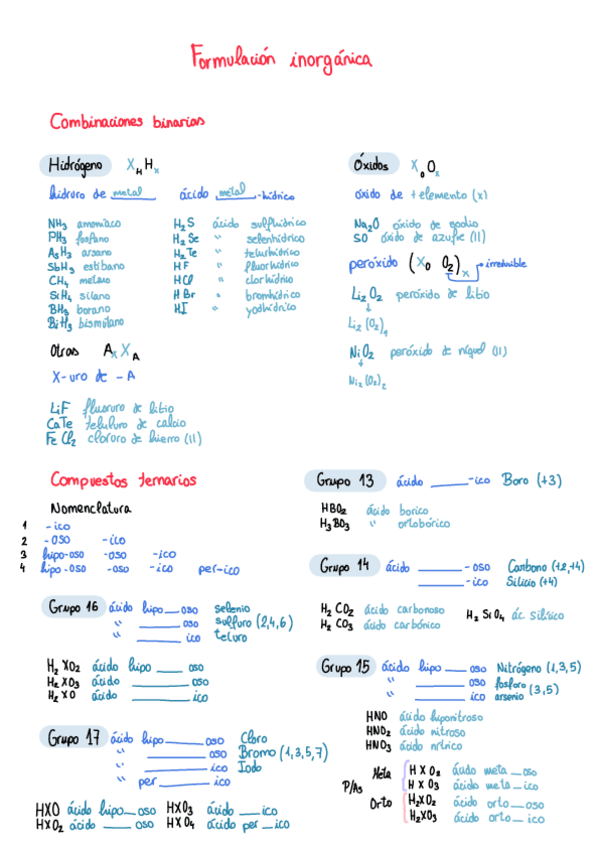 Formulación inorgánica
Combinaciones binarias
Hidrógeno X_H H_x
hidruro de metal ácido metal -hídrico
NH₃ amoníaco
PH₃ fosfano
AsH₃ arsano
SbH₃ estibano
CH₄ metano
SiH₄ silano
BH₃ borano
BiH₃ bismutano
H₂S ácido sulfhídrico
H₂Se " selenhídrico
H₂Te " telurhídrico
HF " fluorhídrico
HCl " clorhídrico
HBr " bromhídrico
HI " yodhídrico
Otras A_x X_A
X-uro de - A
LiF fluoruro de litio
CaTe telururo de calcio
FeCl₂ cloruro de hierro (II)
Óxidos X_O O_x
óxido de + elemento (x)
Na₂O óxido de sodio
SO óxido de azufre (II)
peróxido (X_O O₂)_x irreducible
Li₂O₂ peróxido de litio
↓
Li₂(O₂)₁
NiO₂ peróxido de níquel (II)
↓
Ni₂(O₂)₂
Compuestos ternarios
Nomenclatura
1 -ico
2 -oso -ico
3 hipo-oso -oso -ico
4 hipo-oso -oso -ico per-ico
Grupo 16 ácido hipo___oso selenio
" ___ oso sulfuro (2,4,6)
" ___ ico teluro
H₂XO₂ ácido hipo ___ oso
H₂XO₃ ácido ___ oso
H₂XO ácido ___ ico
Grupo 17 ácido hipo___oso Cloro
" ___ oso Bromo (1,3,5,7)
" ___ ico Iodo
" per___ ico
HXO ácido hipo__oso HXO₃ ácido __ico
HXO₂ ácido __ oso HXO₄ ácido per__ico
Grupo 13 ácido ___-ico Boro (+3)
HBO₂ ácido borico
H₃BO₃ " ortobórico
Grupo 14 ácido ___ -oso Carbono (+2,+4)
___ -ico Silicio (+4)
H₂CO₂ ácido carbonoso
H₂CO₃ ácido carbónico
H₂SiO₄ ác. silícico
Grupo 15 ácido hipo ___ oso Nitrógeno (1,3,5)
" ___ oso fosforo
" ___ ico arsenio (3,5)
HNO ácido hiponitroso
HNO₂ ácido nitroso
HNO₃ ácido nítrico
P/As
Meta HXO₂ ácido meta __oso
HXO₃ ácido meta__ico
Orto H₂XO₂ ácido orto__oso
H₂XO₃ ácido orto__ico